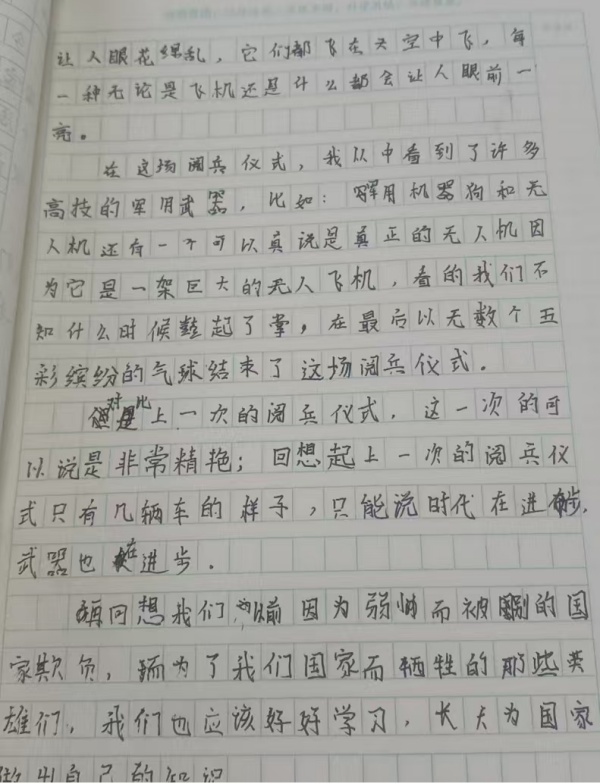 让人眼花缭乱，它们都飞在天空中飞，每
一种无论是飞机还是什么都会让人眼前一
亮。
在这场阅兵仪式，我从中看到了许多
高技的军用武器，比如：军用机器狗和无
人机还有一个可以真说是真正的无人机因
为它是一架巨大的无人飞机，看的我们不
知什么时候鼓起了掌，在最后以无数个五
彩缤纷的气球结束了这场阅兵仪式。
对比上一次的阅兵仪式，这一次的可
以说是非常精艳；回想起上一次的阅兵仪
式只有几辆车的样子，只能说时代在进步，
武器也在进步。
回想我们以前因为弱小而被别的国
家欺负，而为了我们国家而牺牲的那些英
雄们，我们也应该好好学习，长大为国家
做出自己的知识